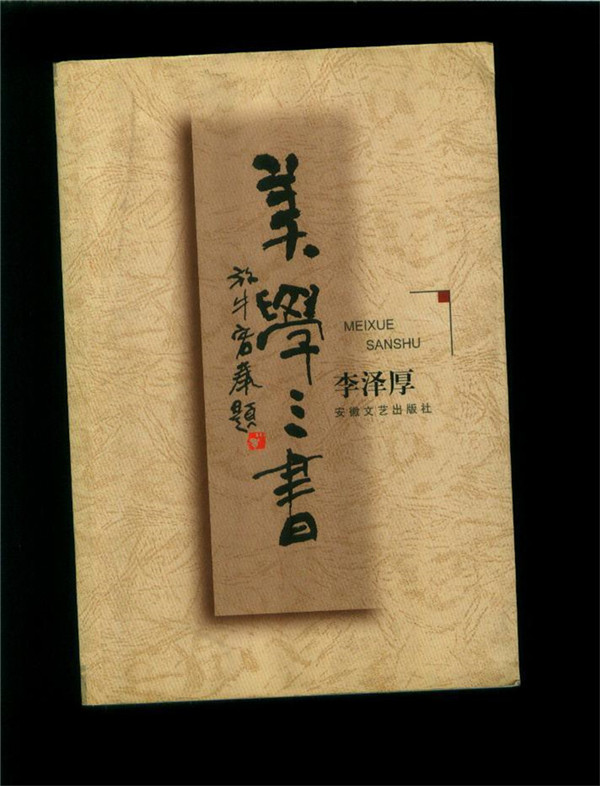 美學三書
放牛客奉題
MEIXUE
SANSHU
李泽厚
安徽文艺出版社